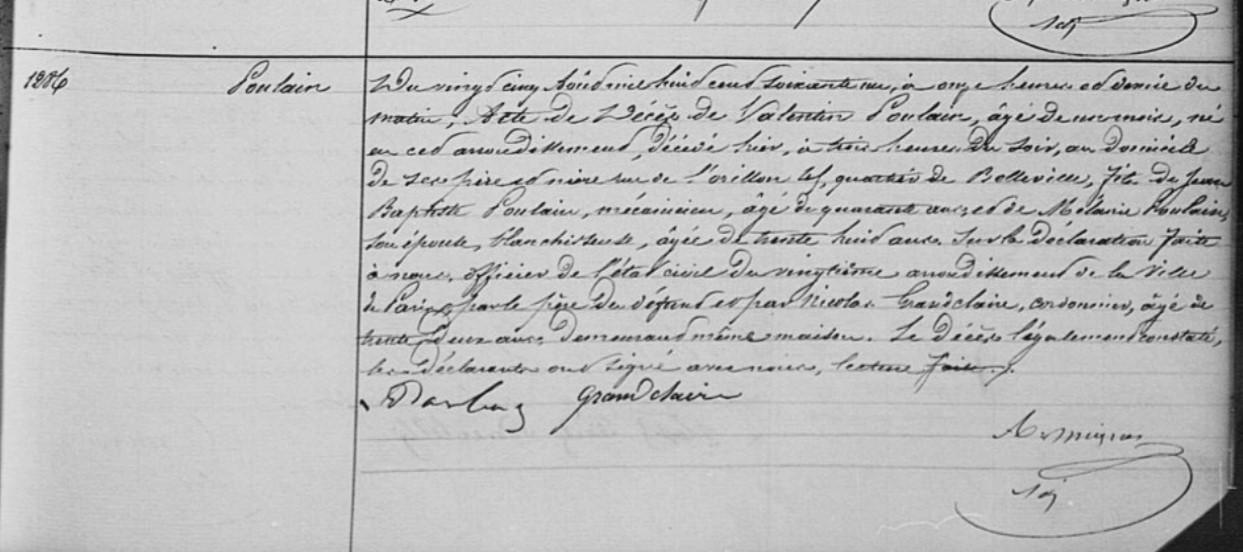 1286 Poulain Du vingt cinq Août mil huit cent soixante un, à onze heures et demie du
matin, Acte de Décès de Valentin Poulain, âgé de un mois, né
en cet arrondissement, décédé hier, à trois heures du soir, au domicile
de ses père et mère rue de l'orillon quartier de Belleville, fils de Jean
Baptiste Poulain, mécanicien, âgé de quarante ans, et de Mélanie Poulain,
son épouse, blanchisseuse, âgée de trente huit ans. Sur la déclaration faite
à nous, officier de l'état civil du vingtième arrondissement de la Ville
de Paris, par le père du défunt et par Nicolas Grandclaire, cordonnier, âgé de
trente deux ans, demeurant même maison. Le décès légalement constaté,
les déclarants ont signé avec nous, lecture faite.
Grandclaire